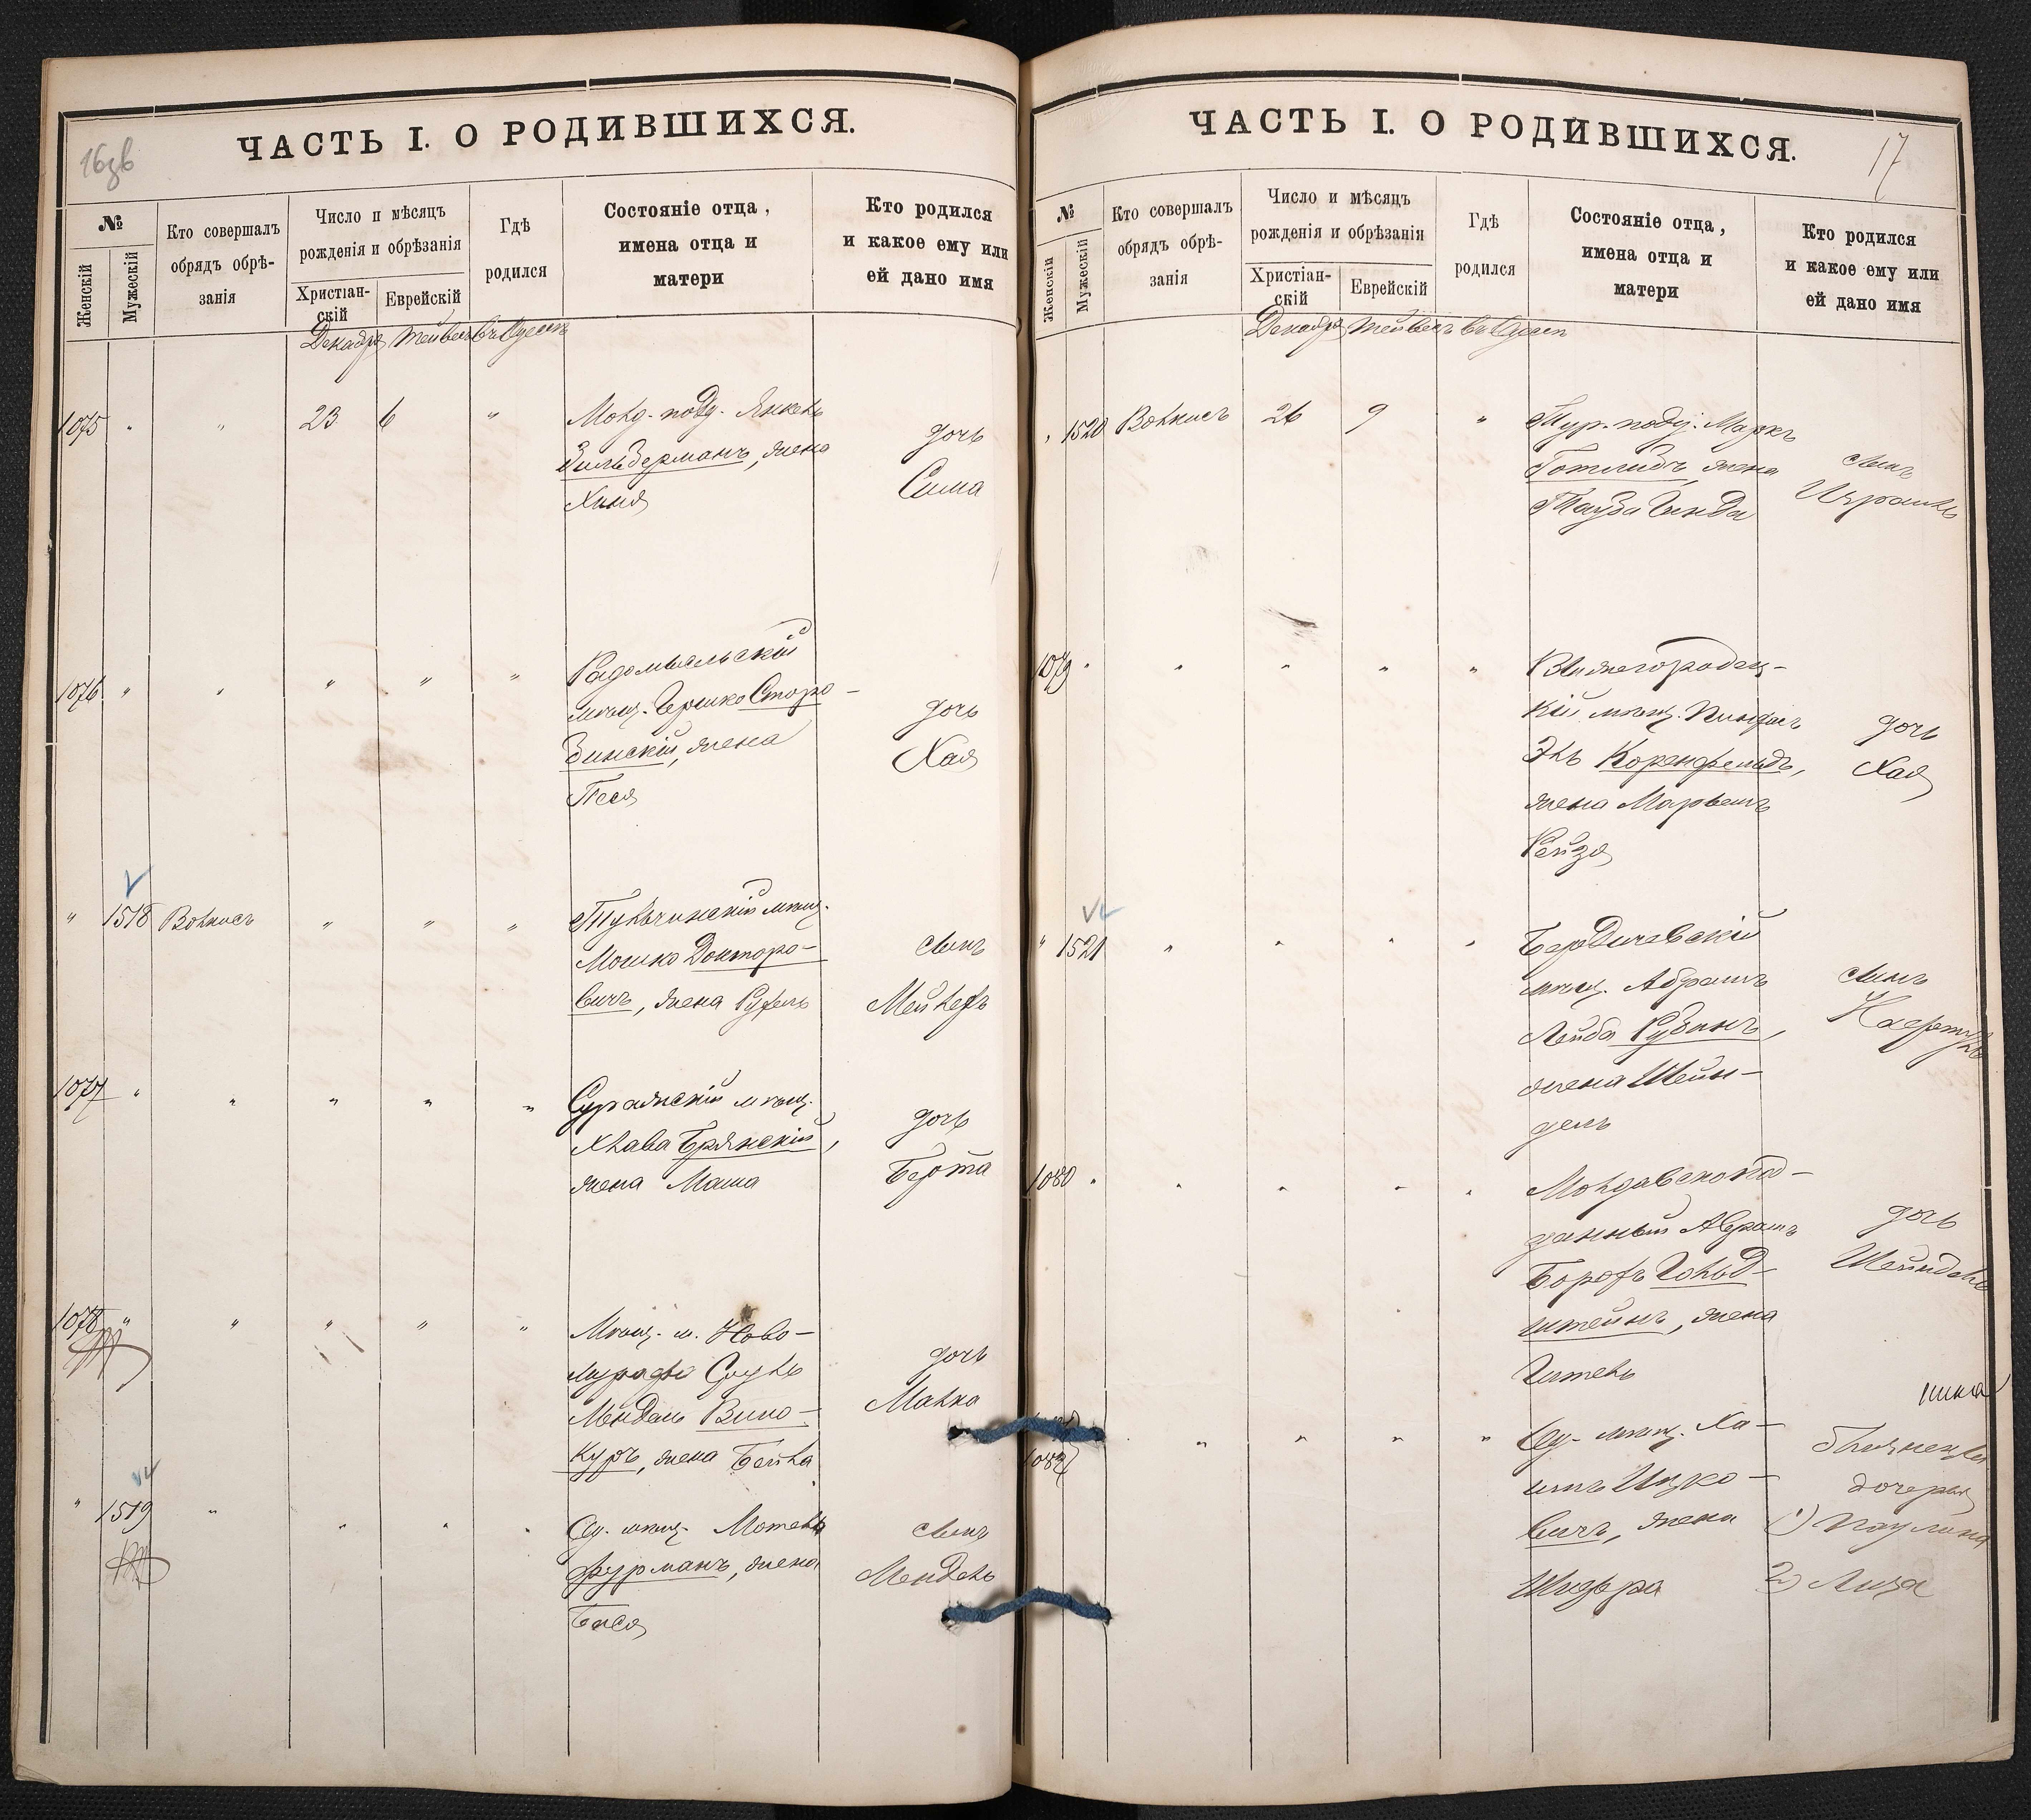 ЧАСТЬ I. О РОДИВШИХСЯ.
16зв
№
Женскій
Мужескій
Кто совершалъ
обрядъ обрѣ-
занія
Число и мѣсяцъ
рожденія и обрѣзанія
Христіан-
скій
Еврейскій
Гдѣ
родился
Состояніе отца,
имена отца и
матери
Кто родился
и какое ему или
ей дано имя
Декабря Тейвесъ Въ Одессѣ
1075 " " 23 6 "
Молд. подд. Янкель
Зильберманъ, жена
Хиня
дочь
Сима
1076 " " " " "
Радомысльскій
мѣщ. Гершко Сторо-
жена
Песя
дочь
Хая
" 1518 Волкисъ " " "
Тульчинскій мѣщ.
Мошко Докторо-
вичъ, жена Рухель
сынъ
Мейлехъ
1077 " " " " "
Суражскій мѣщ.
Хлавна Брянскій,
жена Маша
дочь
Берта
1078 " " " " "
Мѣщ. м. Ново-
Сруль
Мендель Вино-
куръ, жена Бейла
дочь
Малка
" 1519 " " " "
Од. мѣщ. Мотель
Фурманъ, жена
Бася
сынъ
Мендель
ЧАСТЬ I. О РОДИВШИХСЯ.
17
№
Женскій
Мужескій
Кто совершалъ
обрядъ обрѣ-
занія
Число и мѣсяцъ
рожденія и обрѣзанія
Христіан-
скій
Еврейскій
Гдѣ
родился
Состояніе отца,
имена отца и
матери
Кто родился
и какое ему или
ей дано имя
Декабря Тейвесъ Въ Одессѣ
" 1520 Волкисъ 26 9 "
Тур. подд. Маркъ
Готлибъ, жена
Тауба Гинда
сынъ
Израиль
1079 " " " " "
Вышегородец-
кій мѣщ. Пинхасъ
Эль Коренфельдъ,
жена
Рейзя
дочь
Хая
" 1521 " " " "
Бердичевскій
мѣщ. Абрамъ
Лейба Рубинъ,
жена Шейн-
дель
сынъ
Нафтулъ
1080 " " " " "
Молдавскопод-
данный Аврамъ
Борохъ Гольд-
штейнъ, жена
Гитель
дочь
Шейндель
1082 " " " "
Од. мѣщ. Ха-
имъ Ицко-
вичъ, жена
Шифра
близнецы
дочери
1) Паулина
2) Лиза